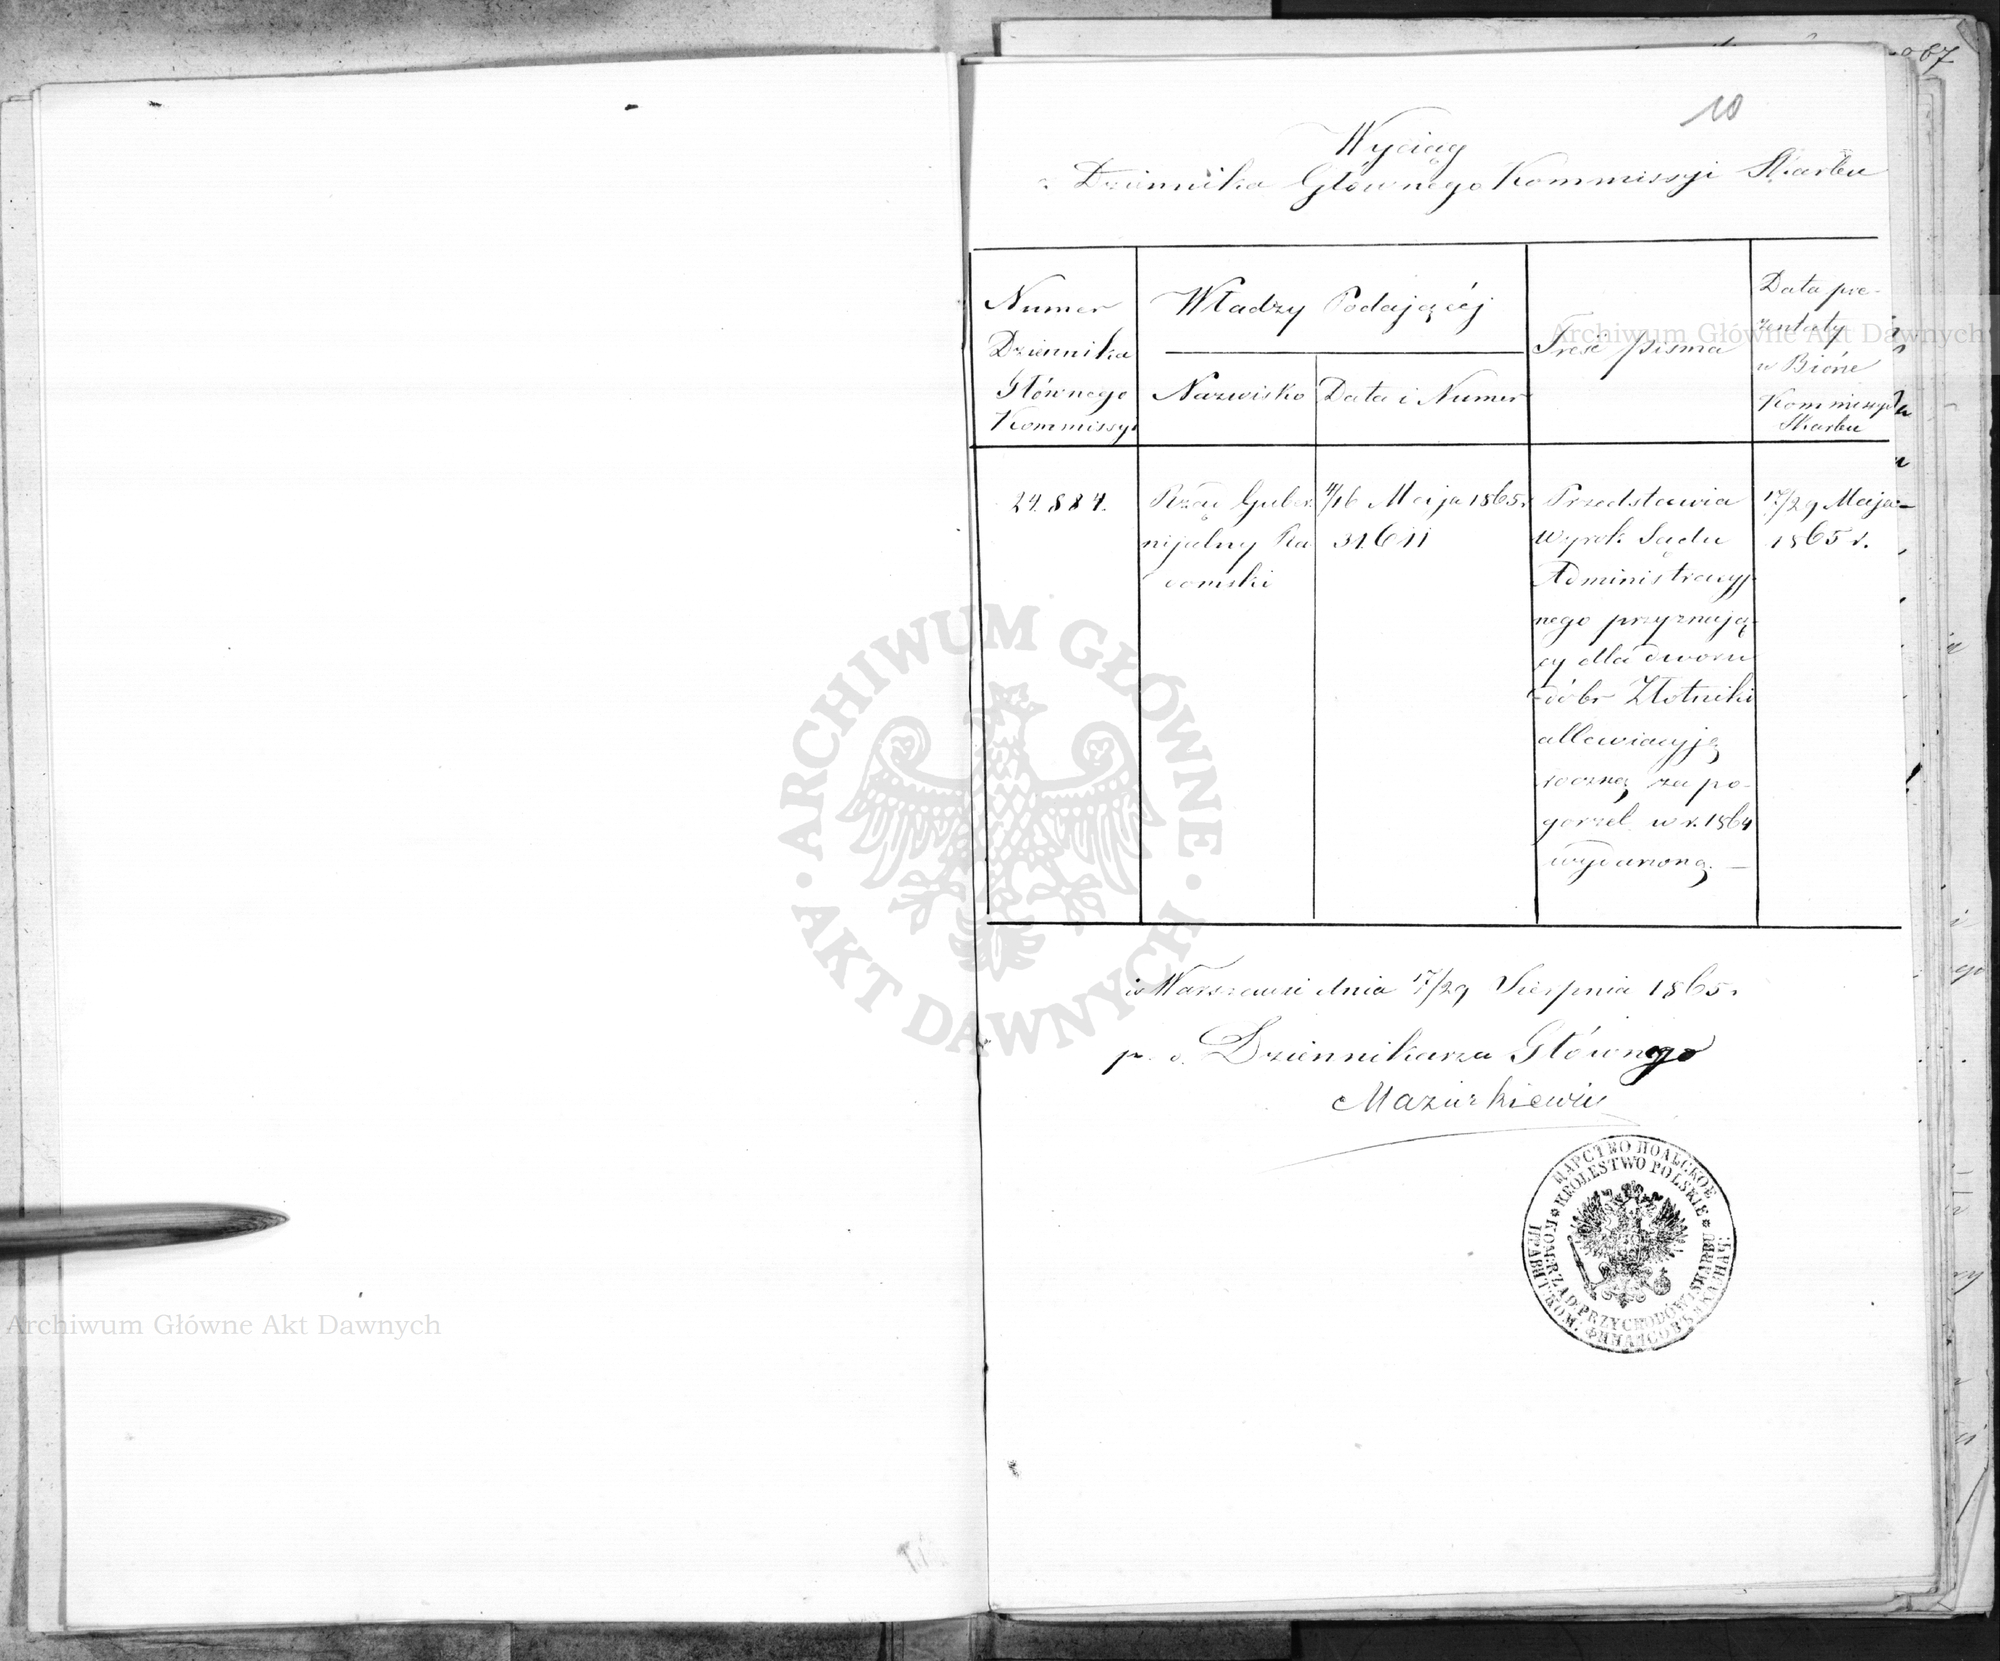 10
Wyciąg
z Dziennika Głównego Kommissyi Skarbu
Numer
Dziennika
Głównego
Kommissyi
Władzy Podającéj
Nazwisko
Data i Numer
Treść pisma
Data pre-
zentaty
w Biórze
Kommissyi
Skarbu
24.884.
Rząd Guber
nijalny Ra
domski
4/16 Maja 1865 r.
31611
Przedstawia
wyrok Sądu
Administracyj-
nego przyznają-
cy dla dworu
dóbr Złotniki
allewiacyję
roczną za po-
gorzel w r. 1864
wydarzoną. —
17/29 Maja
1865 r.
w Warszawie dnia 17/29 Sierpnia 1865 r.
p. o. Dziennikarza Głównego
Mazurkiewicz
ЦАРСТВО ПОЛЬСКОЕ
KRÓLESTWO POLSKIE
KOM. RZĄD. PRZYCHODÓW I SKARBU
ПРАВИТ. КОМ. ФИНАНСОВЪ И КАЗНАЧ.
ARCHIWUM GŁÓWNE
AKT DAWNYCH
Archiwum Główne Akt Dawnych
Archiwum Główne Akt Dawnych